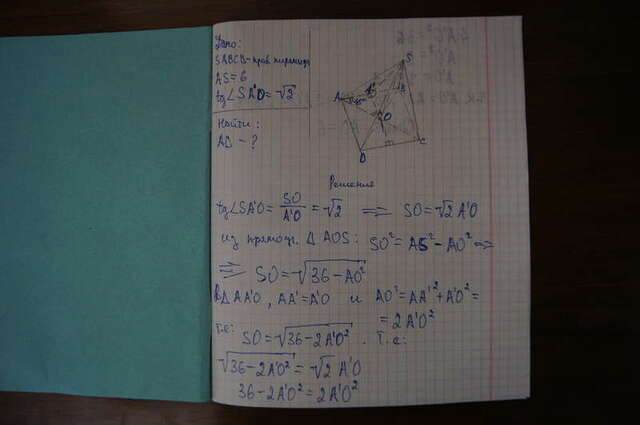 Дано:
SABCD - прав пирамида
AS = 6
tg∠SA'O = √2
Найти:
AD - ?
S
A
A'
B
O
D
C
Решение
tg∠SA'O = SO/A'O = √2 ⇒ SO = √2 A'O
из прямоуг. Δ AOS: SO² = AS² - AO² ⇒
⇒ SO = √(36 - AO²)
В Δ AA'O, AA' = A'O и AO² = AA'² + A'O² =
= 2A'O²
т.е: SO = √(36 - 2A'O²). Т.е:
√(36 - 2A'O²) = √2 A'O
36 - 2A'O² = 2A'O²